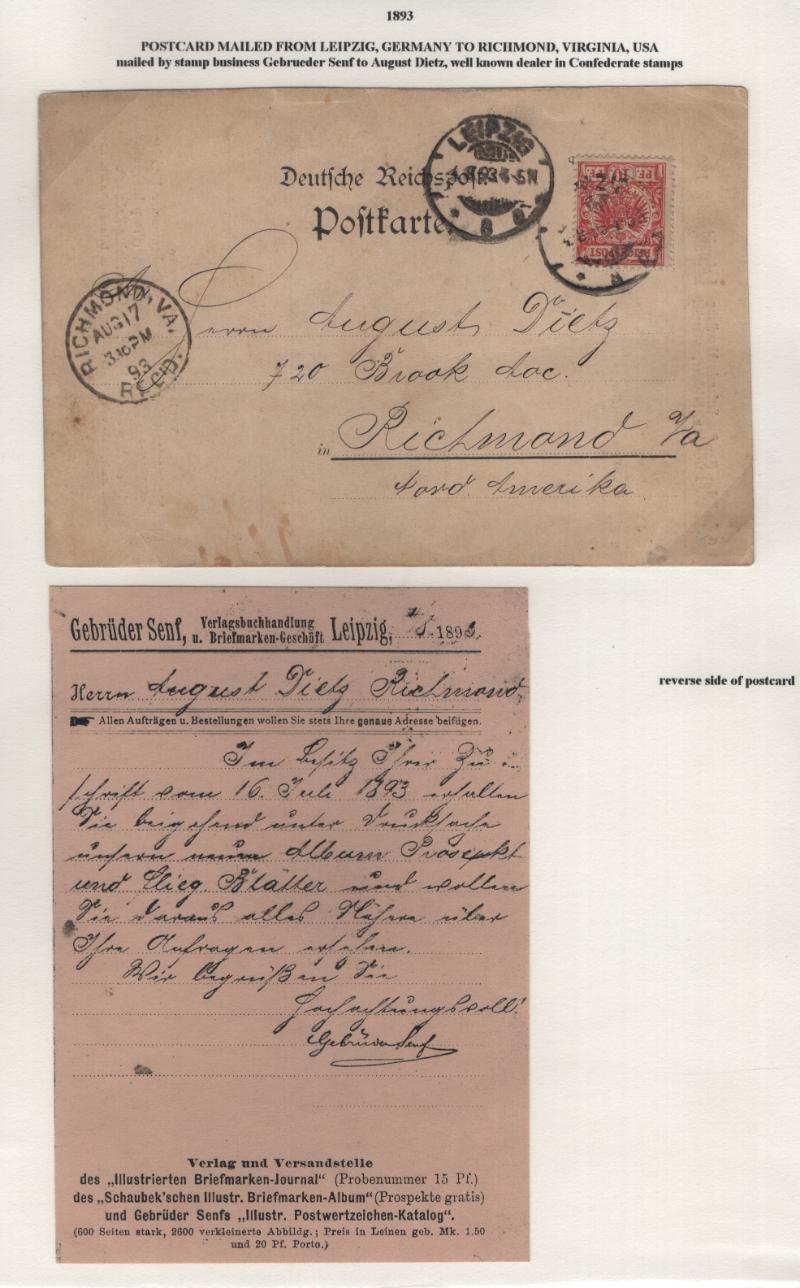 1893
POSTCARD MAILED FROM LEIPZIG, GERMANY TO RICHMOND, VIRGINIA, USA
mailed by stamp business Gebrueder Senf to August Dietz, well known dealer in Confederate stamps
LEIPZIG
Deutsche Reichspost
Postkarte
REICHSPOST
RICHMOND, VA.
AUG 17
3 30 PM
93
REC'D.
Herrn August Dietz
720 Brook
in Richmond Va
Nord Amerika.
Gebrüder Senf, Verlagsbuchhandlung u. Briefmarken-Geschäft Leipzig, 189
reverse side of postcard
Herrn August Dietz Richmond
Allen Aufträgen u. Bestellungen wollen Sie stets Ihre genaue Adresse beifügen.
Im Besitz Ihrer Zu
schrift vom 16. Juli 1893 erhalten
Sie beigehend unter Drucksache
unsern neuen Album Prospekt
und Flieg. Blätter und wollen
Sie daraus alles Nähere über
Ihre Anfragen ersehen.
Wir begrüßen Sie
Hochachtungsvoll!
Gebrüder Senf
Verlag und Versandstelle
des „Illustrierten Briefmarken-Journal“ (Probenummer 15 Pf.)
des „Schaubek'schen Illustr. Briefmarken-Album“ (Prospekte gratis)
und Gebrüder Senfs „Illustr. Postwertzeichen-Katalog“.
(600 Seiten stark, 2600 verkleinerte Abbildg.; Preis in Leinen geb. Mk. 1.50
und 20 Pf. Porto.)